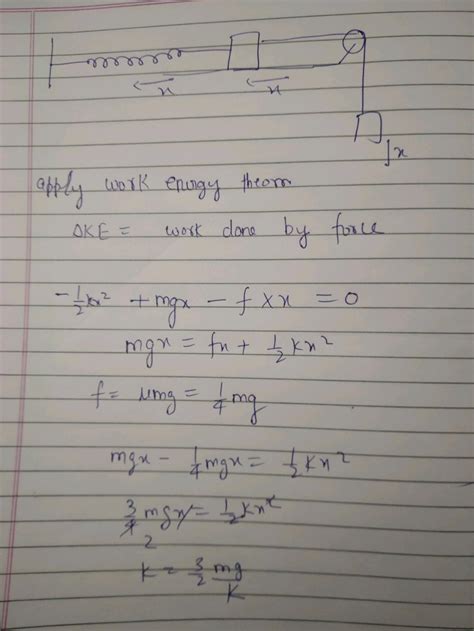 x
x
x
apply work energy theom
ΔKE = work done by force
-1/2 kx² + mgx - f × x = 0
mgx = fx + 1/2 kx²
f = μmg = 1/4 mg
mgx - 1/4 mgx = 1/2 kx²
3/4 mgx = 1/2 kx²
2
k = 3/2 mg/K